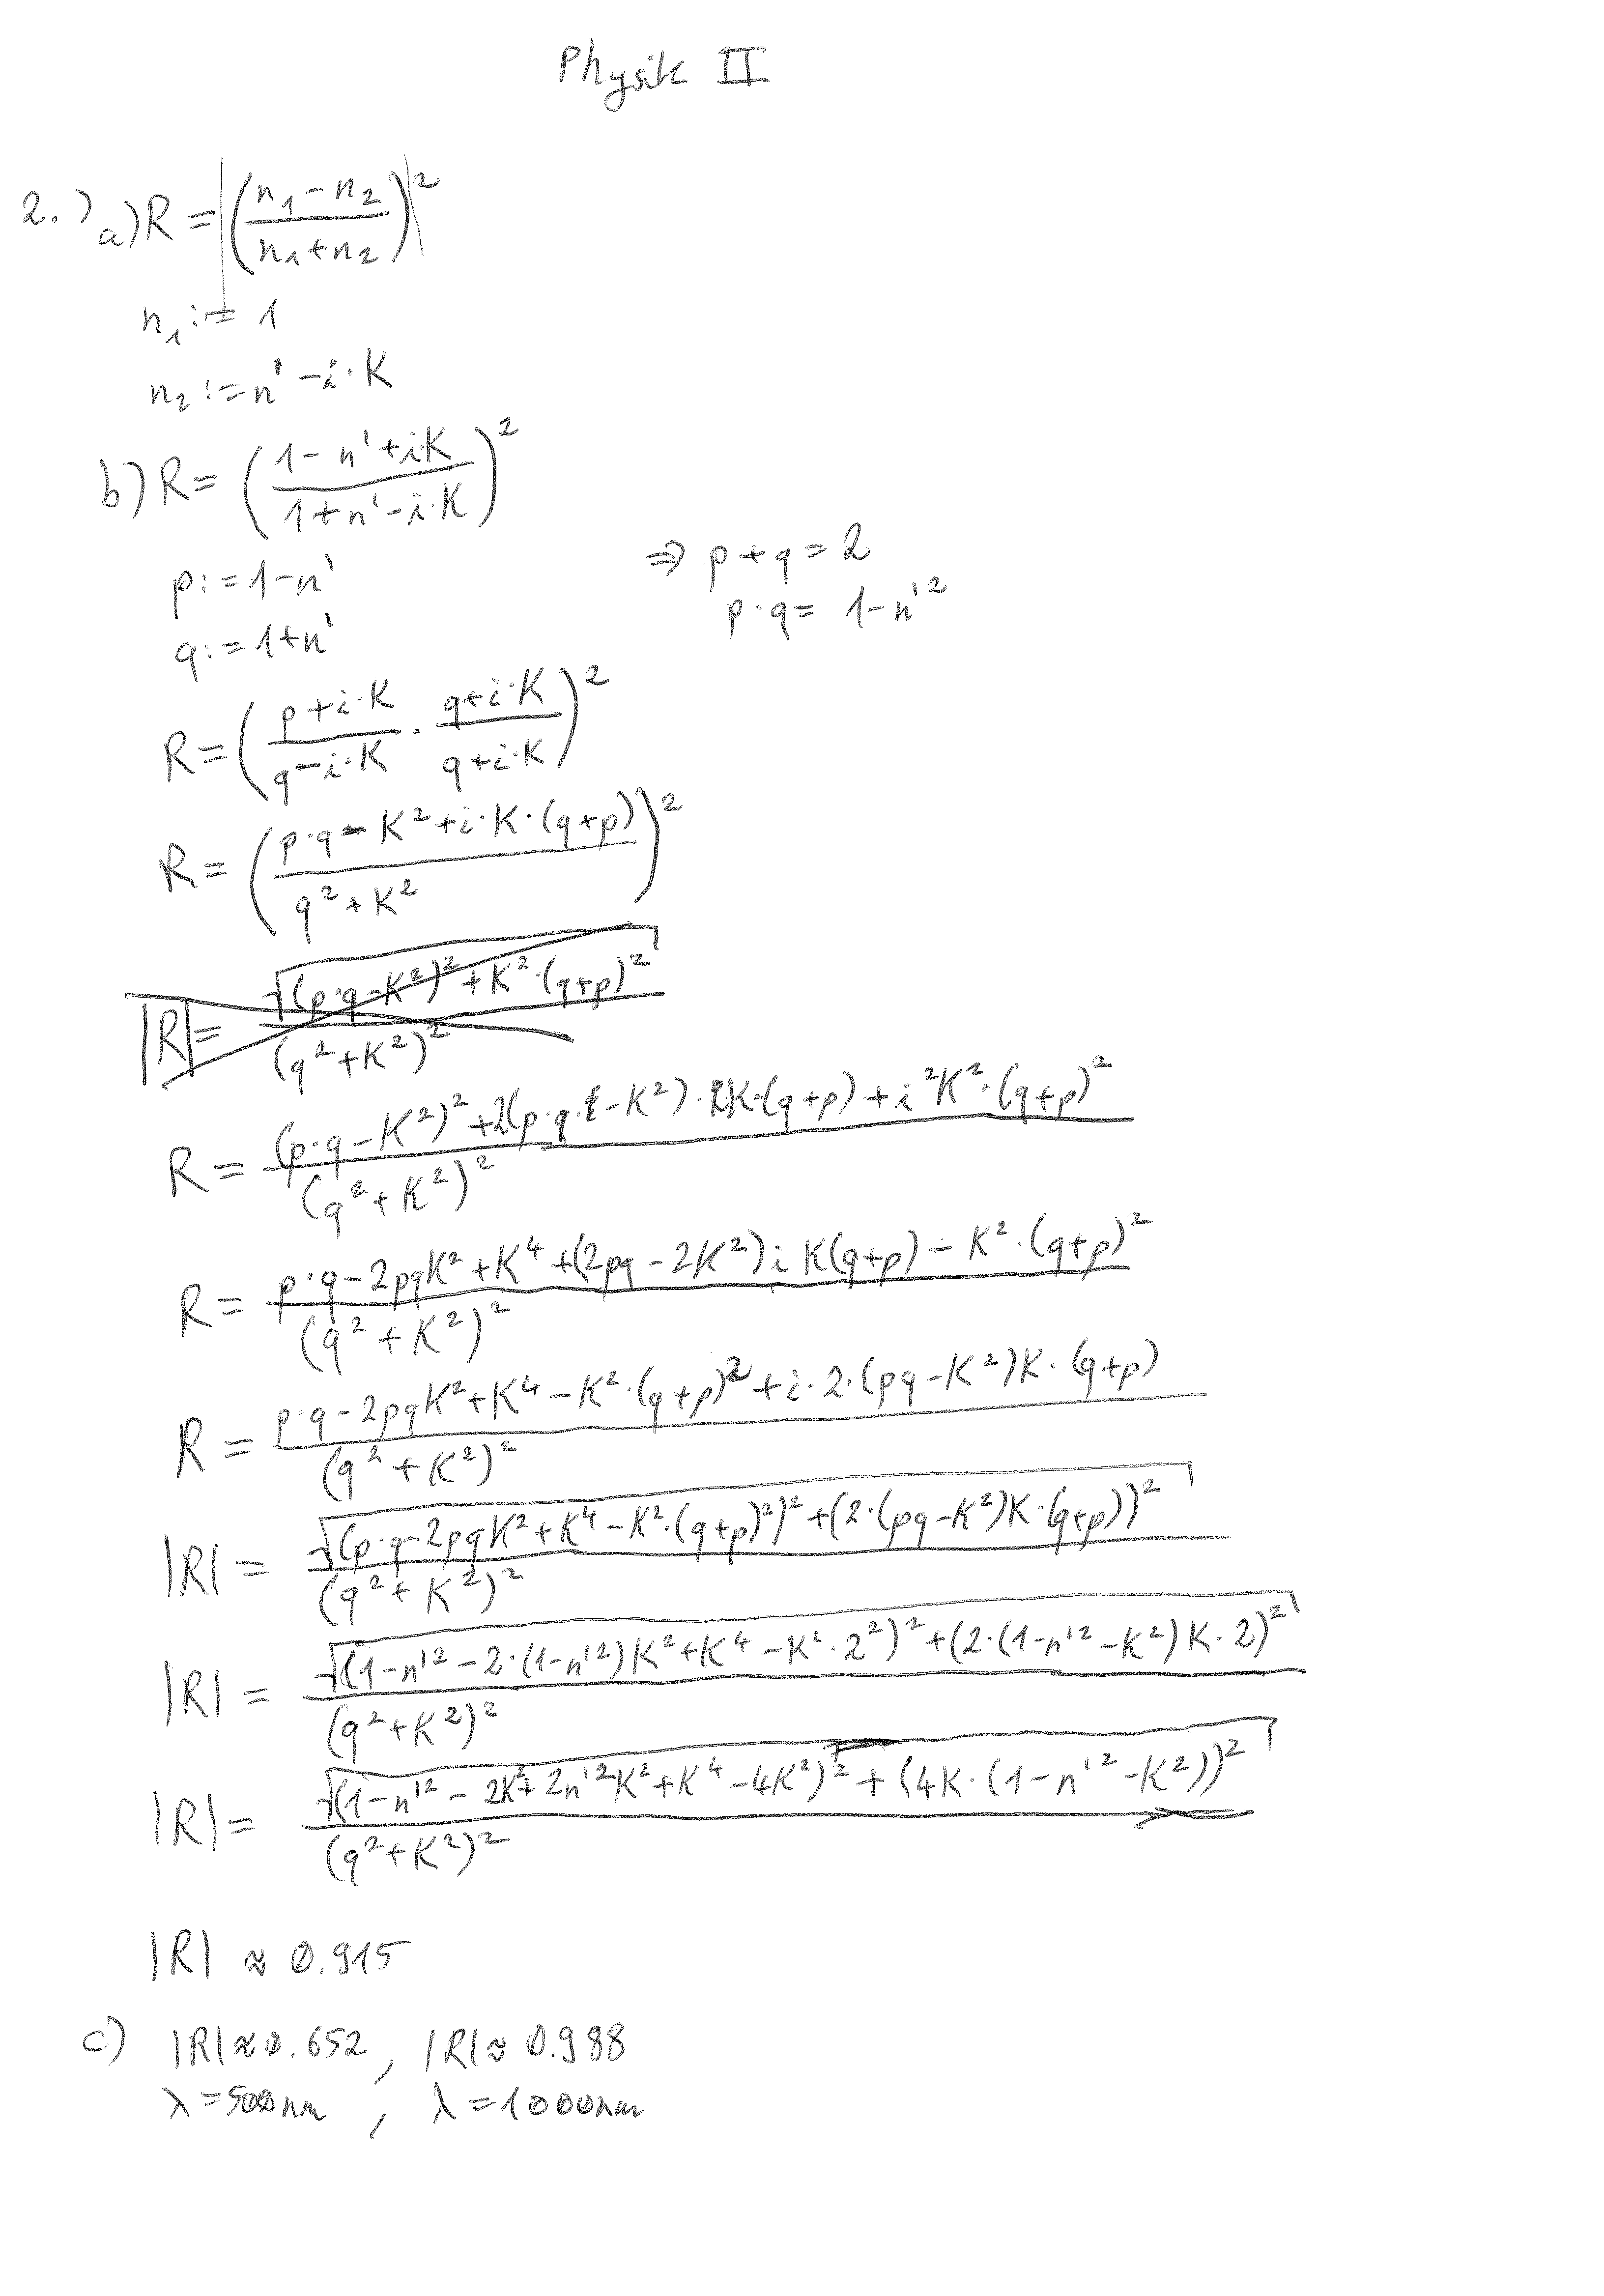 Physik II
2.) a) R = |((n₁ - n₂)/(n₁ + n₂))|²
n₁ := 1
n₂ := n' - i·K
b) R = ((1 - n' + iK)/(1 + n' - i·K))²
p := 1 - n'
⇒ p + q = 2
q := 1 + n'
p·q = 1 - n'²
R = ((p + i·K)/(q - i·K) · (q + i·K)/(q + i·K))²
R = ((p·q - K² + i·K·(q+p))/(q² + K²))²
|R| = √((p·q - K²)² + K²·(q+p)²)/(q² + K²)²
R = ((p·q - K²)² + 2(p·q - K²)·iK·(q+p) + i²K²·(q+p)²)/(q² + K²)²
R = (p·q - 2pqK² + K⁴ + (2pq - 2K²)i K(q+p) - K²·(q+p)²)/(q² + K²)²
R = (p·q - 2pqK² + K⁴ - K²·(q+p)² + i·2·(pq - K²)K·(q+p))/(q² + K²)²
|R| = √((p·q - 2pqK² + K⁴ - K²·(q+p)²)² + (2·(pq - K²)K·(q+p))²)/(q² + K²)²
|R| = √((1 - n'² - 2·(1 - n'²)K² + K⁴ - K²·2²)² + (2·(1 - n'² - K²)K·2)²)/(q² + K²)²
|R| = √((1 - n'² - 2K² + 2n'²K² + K⁴ - 4K²)² + (4K·(1 - n'² - K²))²)/(q² + K²)²
|R| ≈ 0.915
c) |R| ≈ 0.652 , |R| ≈ 0.988
λ = 500nm , λ = 1000nm